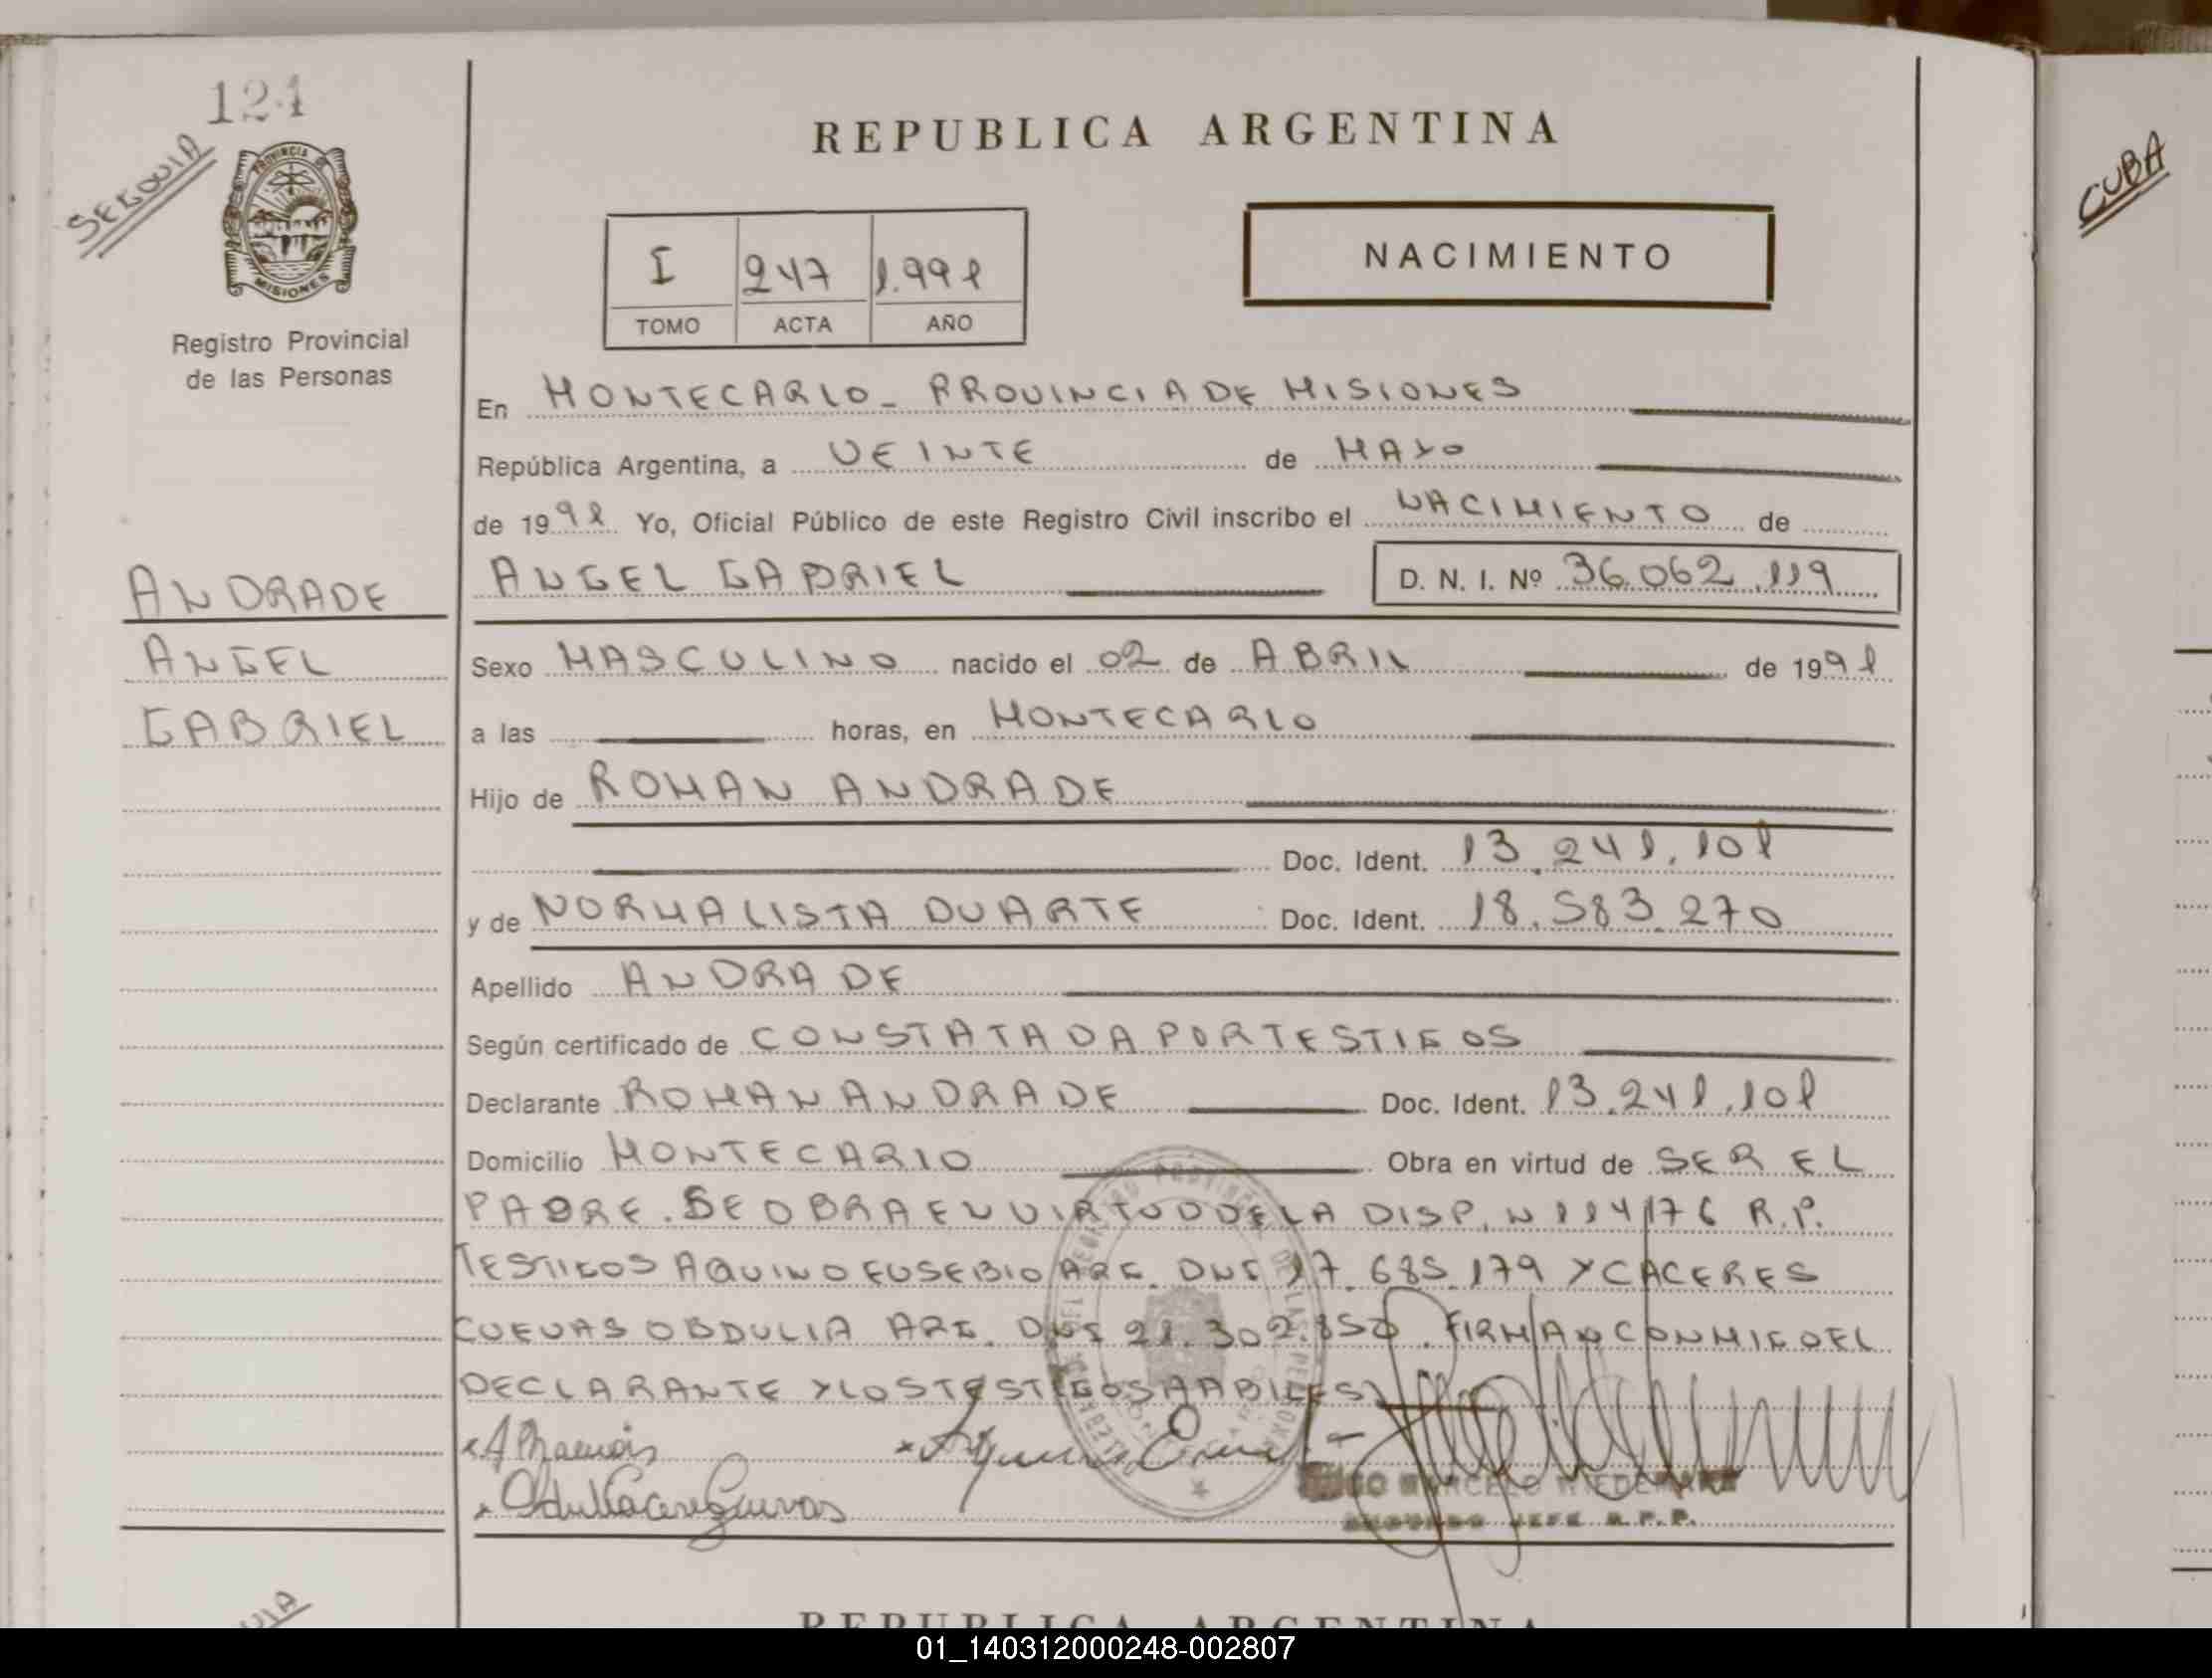 124
SEGOVIA
PROVINCIA DE
MISIONES
Registro Provincial
de las Personas
REPUBLICA ARGENTINA
I 247 1.991
TOMO ACTA AÑO
NACIMIENTO
CUBA
En MONTECARLO - PROVINCIA DE MISIONES
República Argentina, a VEINTE de MAYO
de 1991 Yo, Oficial Público de este Registro Civil inscribo el NACIMIENTO de
ANGEL GABRIEL D. N. I. Nº 36.062.119
ANDRADE
ANGEL
GABRIEL
Sexo MASCULINO nacido el 02 de ABRIL de 1991
a las horas, en MONTECARLO
Hijo de ROMAN ANDRADE
Doc. Ident. 13.241.101
y de NORMA LISTA DUARTE Doc. Ident. 18.583.270
Apellido ANDRADE
Según certificado de CONSTATADA POR TESTIGOS
Declarante ROMAN ANDRADE Doc. Ident. 13.241.101
Domicilio MONTECARLO Obra en virtud de SER EL
PADRE. SE OBRA EN VIRTUD DE LA DISP. N 114/76 R.P.
TESTIGOS AQUINO EUSEBIO ARG. DNI 17.685.179 Y CACERES
CUEVAS OBDULIA ARG. DNI 21.302.850. FIRMAN CONMIGO EL
DECLARANTE Y LOS TESTIGOS HABILES)
MARCELO WIEDEMANN
JEFE R.P.P.
REPUBLICA ARGENTINA
01_140312000248-002807